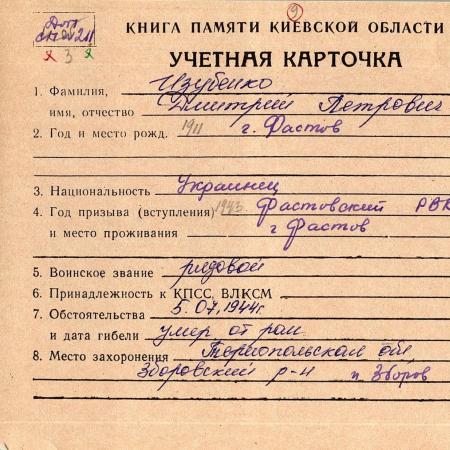 9
Доп
211
3
КНИГА ПАМЯТИ КИЕВСКОЙ ОБЛАСТИ
УЧЕТНАЯ КАРТОЧКА
1. Фамилия, Изубенко
имя, отчество Дмитрий Петрович
2. Год и место рожд. 1911 г. Фастов
3. Национальность Украинец
4. Год призыва (вступления) 1943. Фастовский РВК
и место проживания г Фастов
5. Воинское звание рядовой
6. Принадлежность к КПСС, ВЛКСМ
7. Обстоятельства 5.07.1944г
и дата гибели умер от ран
8. Место захоронения Тернопольская обл,
Зборовский р-н п Зборов